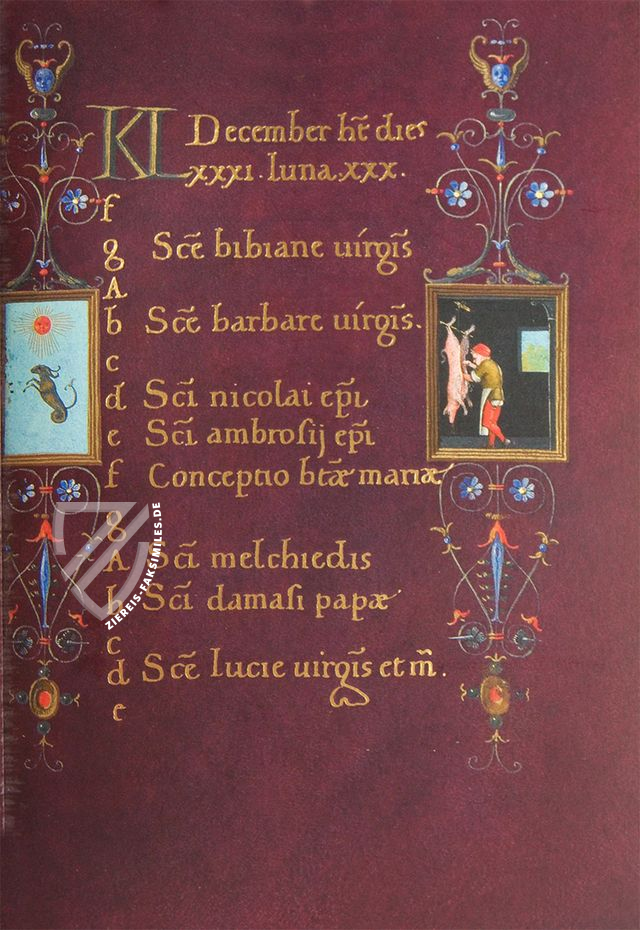 KL December hr̃ dies
xxxi. luna. xxx.
f
g Scẽ bibiane uirgĩs
A
b Scẽ barbare uirgĩs.
c
d Sci̇̃ nicolai ep̃i
e Sci̇̃ ambrosij ep̃i
f Conceptio bt̃æ mariæ
g
A Sci̇̃ melchiedis
b Sci̇̃ damasi papæ
c
d Scẽ lucie uirgĩs et m̃.
e
ZIEREIS-FAKSIMILES.DE